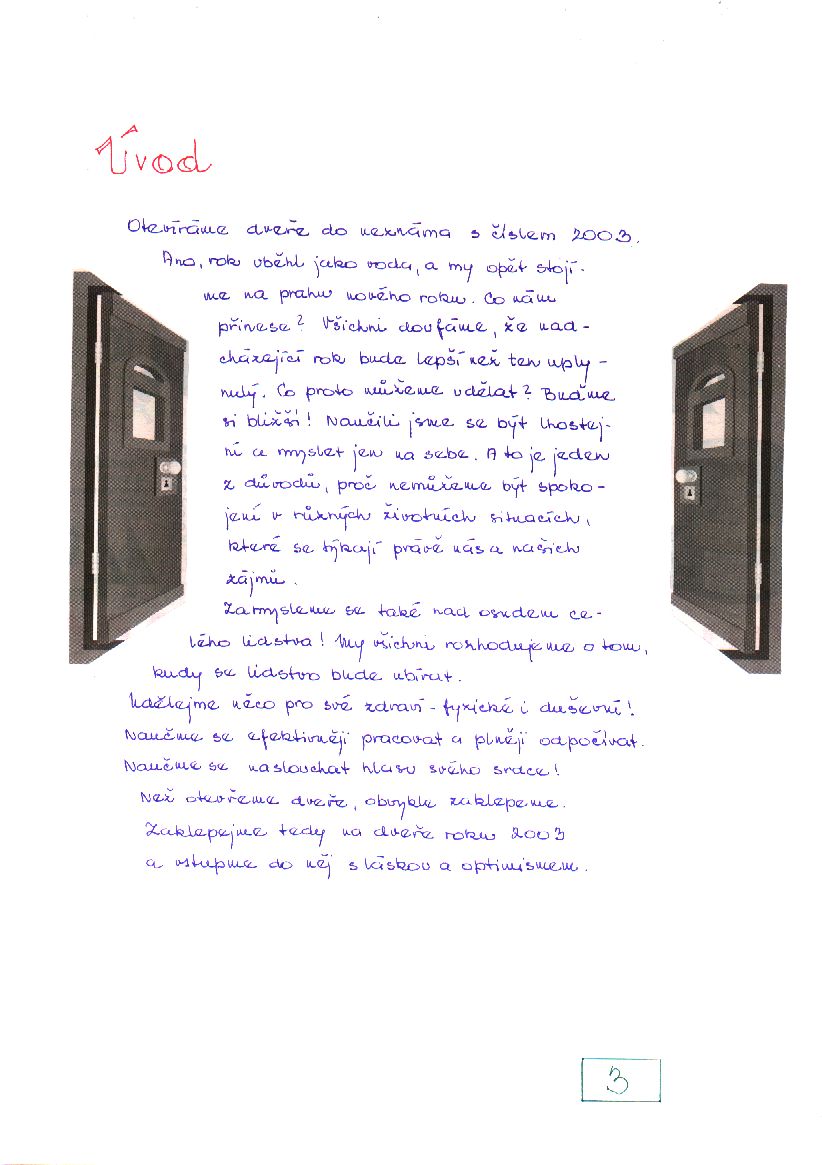 Úvod
Otevíráme dveře do neznáma s číslem 2003.
Ano, rok uběhl jako voda, a my opět stojí-
me na prahu nového roku. Co nám
přinese? Všichni doufáme, že nad-
cházející rok bude lepší než ten uply-
nulý. Co proto můžeme udělat? Buďme
si bližší! Naučili jsme se být lhostej-
ní a myslet jen na sebe. A to je jeden
z důvodů, proč nemůžeme být spoko-
jení v různých životních situacích,
které se týkají právě nás a našich
zájmů.
Zamysleme se také nad osudem ce-
lého lidstva! My všichni rozhodujeme o tom,
kudy se lidstvo bude ubírat.
Udělejme něco pro své zdraví - fyzické i duševní!
Naučme se efektivněji pracovat a plněji odpočívat.
Naučme se naslouchat hlasu svého srdce!
Než otevřeme dveře, obvykle zaklepeme.
Zaklepejme tedy na dveře roku 2003
a vstupme do něj s láskou a optimismem.
3